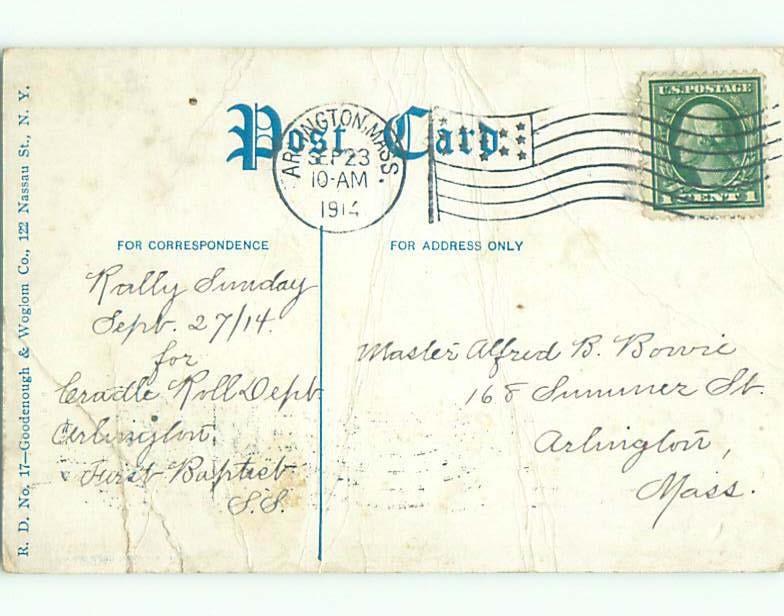 R. D. No. 17—Goodenough & Woglom Co., 122 Nassau St., N. Y.
Post Card
ARLINGTON, MASS.
SEP 23
10-AM
1914
U.S. POSTAGE
1 CENT 1
FOR CORRESPONDENCE
FOR ADDRESS ONLY
Rally Sunday
Sept. 27/14.
for
Cradle Roll Dept
Arlington,
First Baptist
S.S.
Master Alfred B. Bowie
168 Summer St.
Arlington,
Mass.